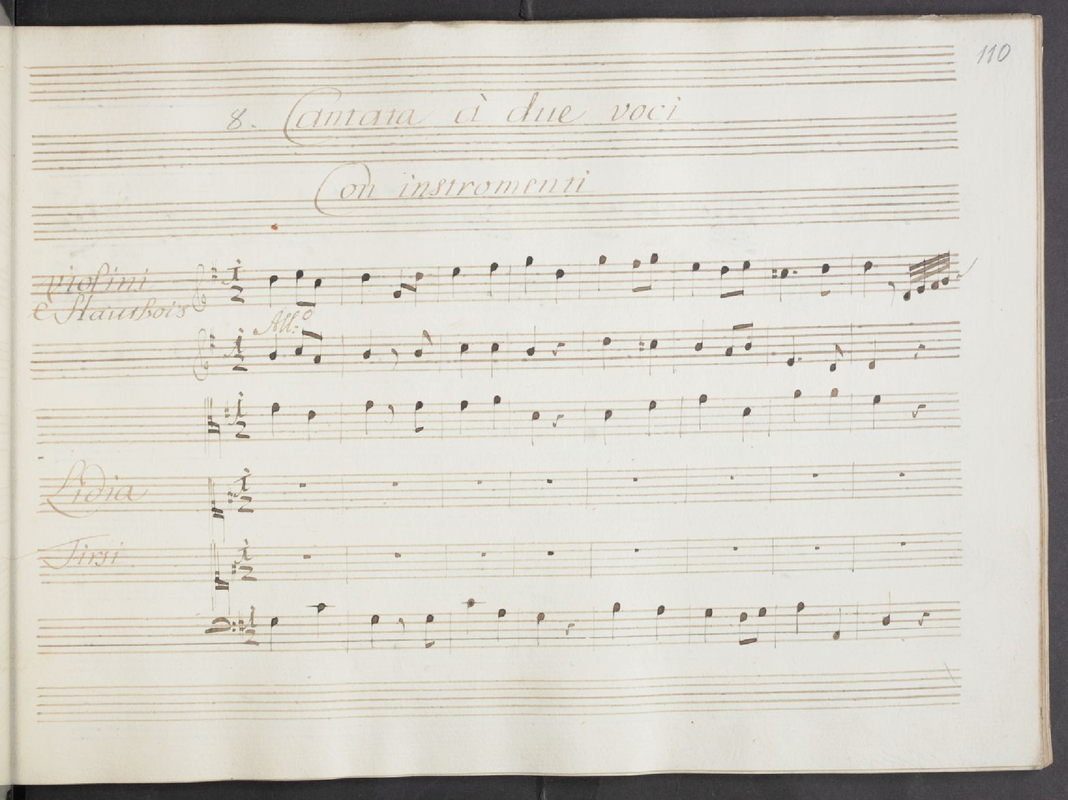 110
8. Cantata à due voci
Con instromenti
Violini
e Hautbois
All:o
Lidia
Tirsi